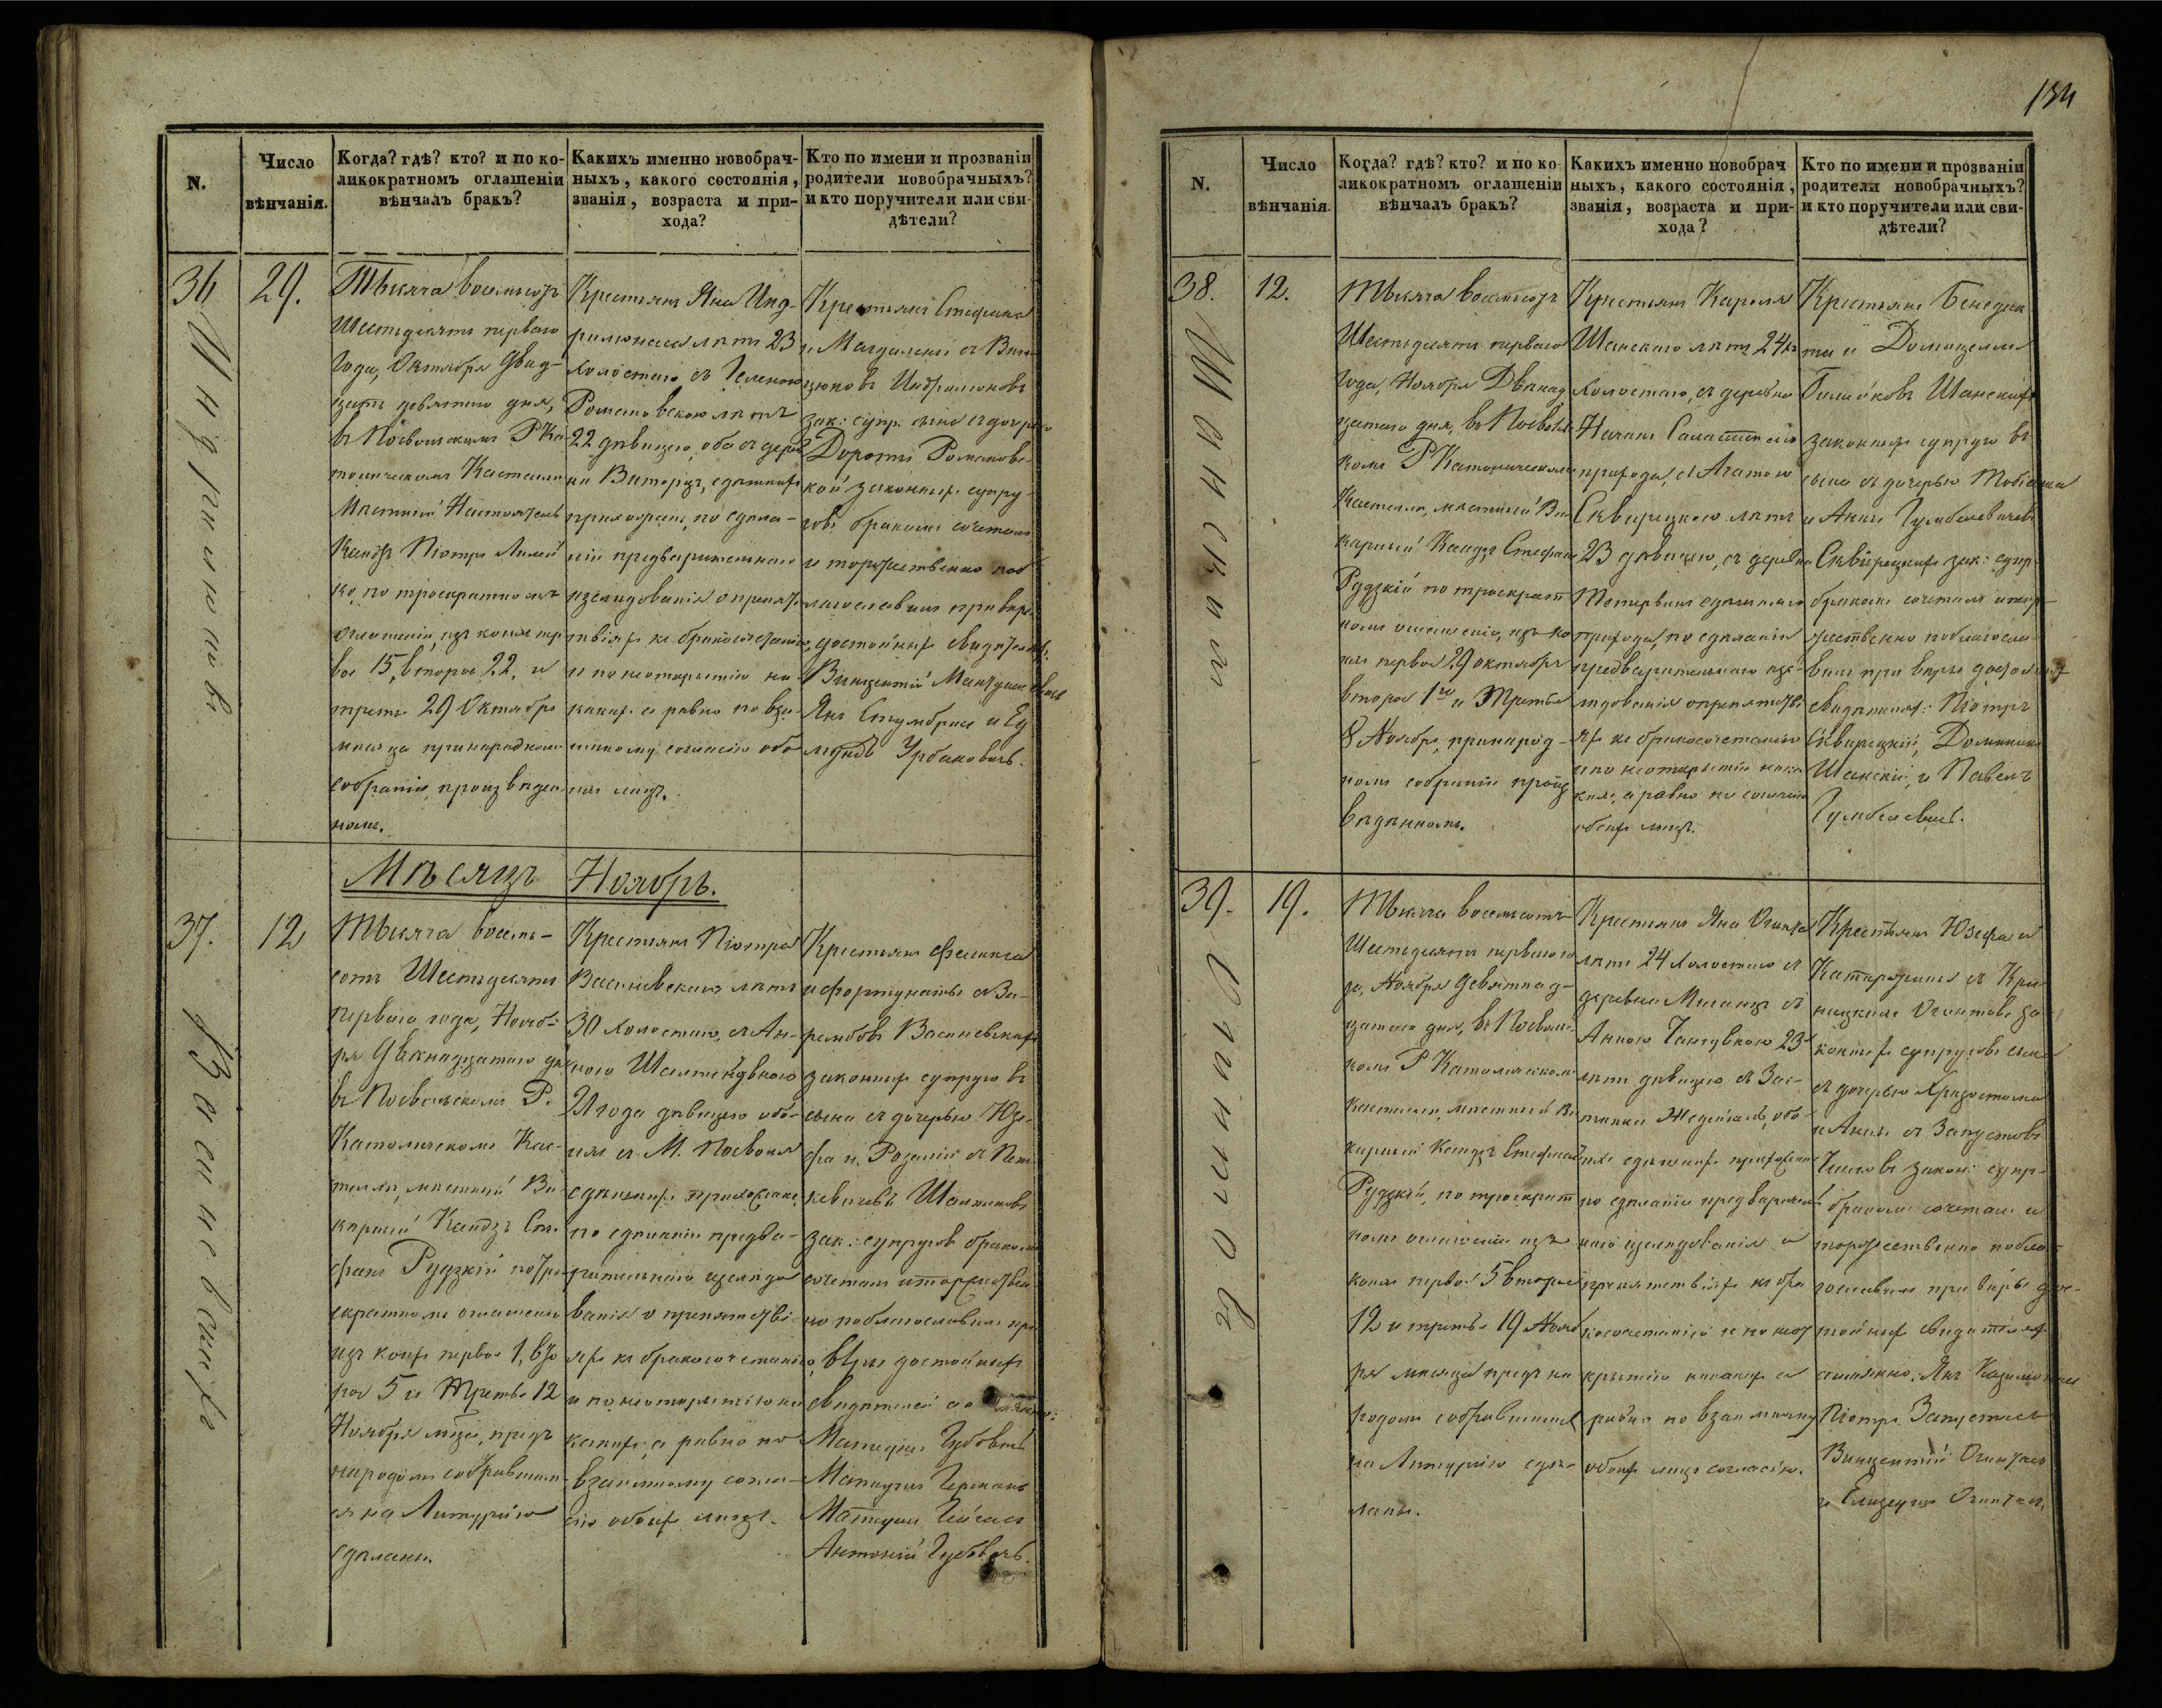 N.
Число
вѣнчанія.
Когда? гдѣ? кто? и по ко-
ликократномъ оглашеніи
вѣнчалъ бракъ?
Какихъ именно новобрач-
ныхъ, какого состоянія,
званія, возраста и при-
хода?
Кто по имени и прозваніи
родители новобрачныхъ?
и кто поручители или сви-
дѣтели?
36
29.
Тысяча восемьсотъ
Шестьдесятъ перваго
Года, Октября двад-
цать девятаго дня,
въ Посвольскомъ Р Ка-
толическомъ Костелѣ
Мѣстный Настоятель
Ксендзъ Піотръ
по троекратномъ
оглашеніи, изъ коихъ пер
вое 15, второе 22, и
третье 29 Октября
мѣсяца при народномъ
собраніи, произведен
номъ.
Крестьянъ Яна Инд-
рилюнаса лѣтъ 23
Холостаго съ Геленою
Романовскою лѣтъ
22 дѣвицею, оба съ дерев
ни
прихожанъ, по сдѣла-
ніи предварительнаго
изслѣдованія о препят
твіяхъ къ бракосочетанію
и по неоткрытію ни-
какихъ а равно по вза-
имному согласію обо
ихъ лицъ.
Крестьянъ Стефана
и Магдалены съ
Индрилюновъ
зак: супр. сына съ дочерью
Дороты Романовс-
кой законныхъ супру-
говъ бракомъ сочеталъ
и торжественно поб
лагословилъ при вѣро-
достойныхъ свидѣтеляхъ:
Винцентій
Янъ Стумбрисъ и Ед
мундъ Урбановичъ.
Мѣсяцъ Ноябрь.
37.
12
Тысяча восемь-
сотъ Шестьдесятъ
перваго года, Нояб-
ря двѣнадцатаго дня
въ Посвольскомъ Р.
Католическомъ Кос-
телѣ, мѣстный Ви
карный Ксендзъ Сте
фанъ Рудзкій по тро
екратномъ оглашеніи
изъ коихъ первое 1, вто
рое 5 и третье 12
Ноября мѣсяца, предъ
народомъ собравшим-
ся на Литургію
сдѣланы.
Крестьянъ Піотра
Василевскаго лѣтъ
30 Холостаго, съ Ан-
ною
21 года дѣвицею обо-
ихъ съ М. Посволя
сдѣшнихъ прихожанъ
по сдѣланіи предва-
рительнаго изслѣдо
ванія о препятстві-
яхъ къ бракосочетанію
и по неоткрытію ни
какихъ, а равно по
взаимному согла-
сію обоихъ лицъ.
Крестьянъ Феликса
и Фортунаты съ За-
рембовъ Василевскихъ
законныхъ супруговъ
сына съ дочерью Юзе-
фа и Розаліи съ Пет-
кевичовъ
зак: супруговъ бракомъ
сочеталъ и торжествен
но поблагословилъ при
вѣрѣ достойныхъ
свидѣтелей
Матеушъ Губовичъ
Матеушъ
Матеушъ
Антоній Губовичъ.
Индрилюновъ
Василевскихъ
134
N.
Число
вѣнчанія.
Когда? гдѣ? кто? и по ко
ликократномъ оглашеніи
вѣнчалъ бракъ?
Какихъ именно новобрач
ныхъ, какого состоянія,
званія, возраста и при-
хода?
Кто по имени и прозваніи
родители новобрачныхъ?
и кто поручители или сви-
дѣтели?
38.
12.
Тысяча восемьсотъ
Шестьдесятъ перваго
года, Ноября Двѣнад
цатаго дня, въ Посвольс
комъ Р Католическомъ
Костелѣ, мѣстный Ви
карный Ксендзъ Стефанъ
Рудзкій по троекрат
номъ оглашеніи, изъ ко
ихъ первое 29 октября
второе 1го и Третье
8 Ноября, при народ-
номъ собраніи произ
веденномъ.
Крестьянъ Кароля
Шанскаго лѣтъ 24
Холостаго, съ деревни
прихода, съ Агатою
Сквирецкою лѣтъ
23 дѣвицею, съ деревни
прихода, по сдѣланіи
предварительнаго изс-
лѣдованія о препятстві
яхъ къ бракосочетанію
и по неоткрытіи ника
кихъ, а равно по согласію
обоихъ лицъ.
Крестьянъ Бенедик
та и Домицели
Шанскихъ
законныхъ супруговъ
сына съ дочерью
и Анны Гумбелевичевъ
Сквирецкихъ зак: супр-
бракомъ сочеталъ и тор-
жественно поблагосло-
вилъ при вѣрѣ достойныхъ
свидѣтеляхъ: Піотръ
Сквирецкій, Доминикъ
Шанскій, и Павелъ
Гумбелевичъ.
Шанскій
39.
19.
Тысяча восемьсотъ
Шестьдесятъ перваго го
да, Ноября девятнад-
цатаго дня, въ Посвольс
комъ Р Католическомъ
Костелѣ, мѣстный Ви
карный Ксендзъ Стефанъ
Рудзкій, по троекрат
номъ оглашеніи изъ
коихъ первое 5 второе
12 и третье 19 Нояб
ря мѣсяца предъ на
родомъ собравшимся
на Литургію сдѣ-
ланы.
Крестьянъ Яна Огинта
лѣтъ 24 Холостаго съ
деревни съ
Анною 23
лѣтъ дѣвицею съ Зас-
тѣнка обо-
ихъ сдѣшнихъ прихожанъ
по сдѣланіи предваритель
наго изслѣдованія о
препятствіяхъ къ бра
косочетанію и по неот
крытію никакихъ а
равно по взаимному
обоихъ лицъ согласію.
Крестьянъ Юзефа и
Катаржины съ
Огинтовъ за
конныхъ супруговъ сына
съ дочерью Хризостома
и Анны съ Запустовъ
закон: супр-
бракомъ сочеталъ и
торжественно побла-
гословилъ при вѣрѣ дос-
тойныхъ свидѣтеляхъ
Янъ
Піотръ Запустасъ
Винцентій Огинтасъ
и Елизеушъ Огинтасъ.
Огинтовъ